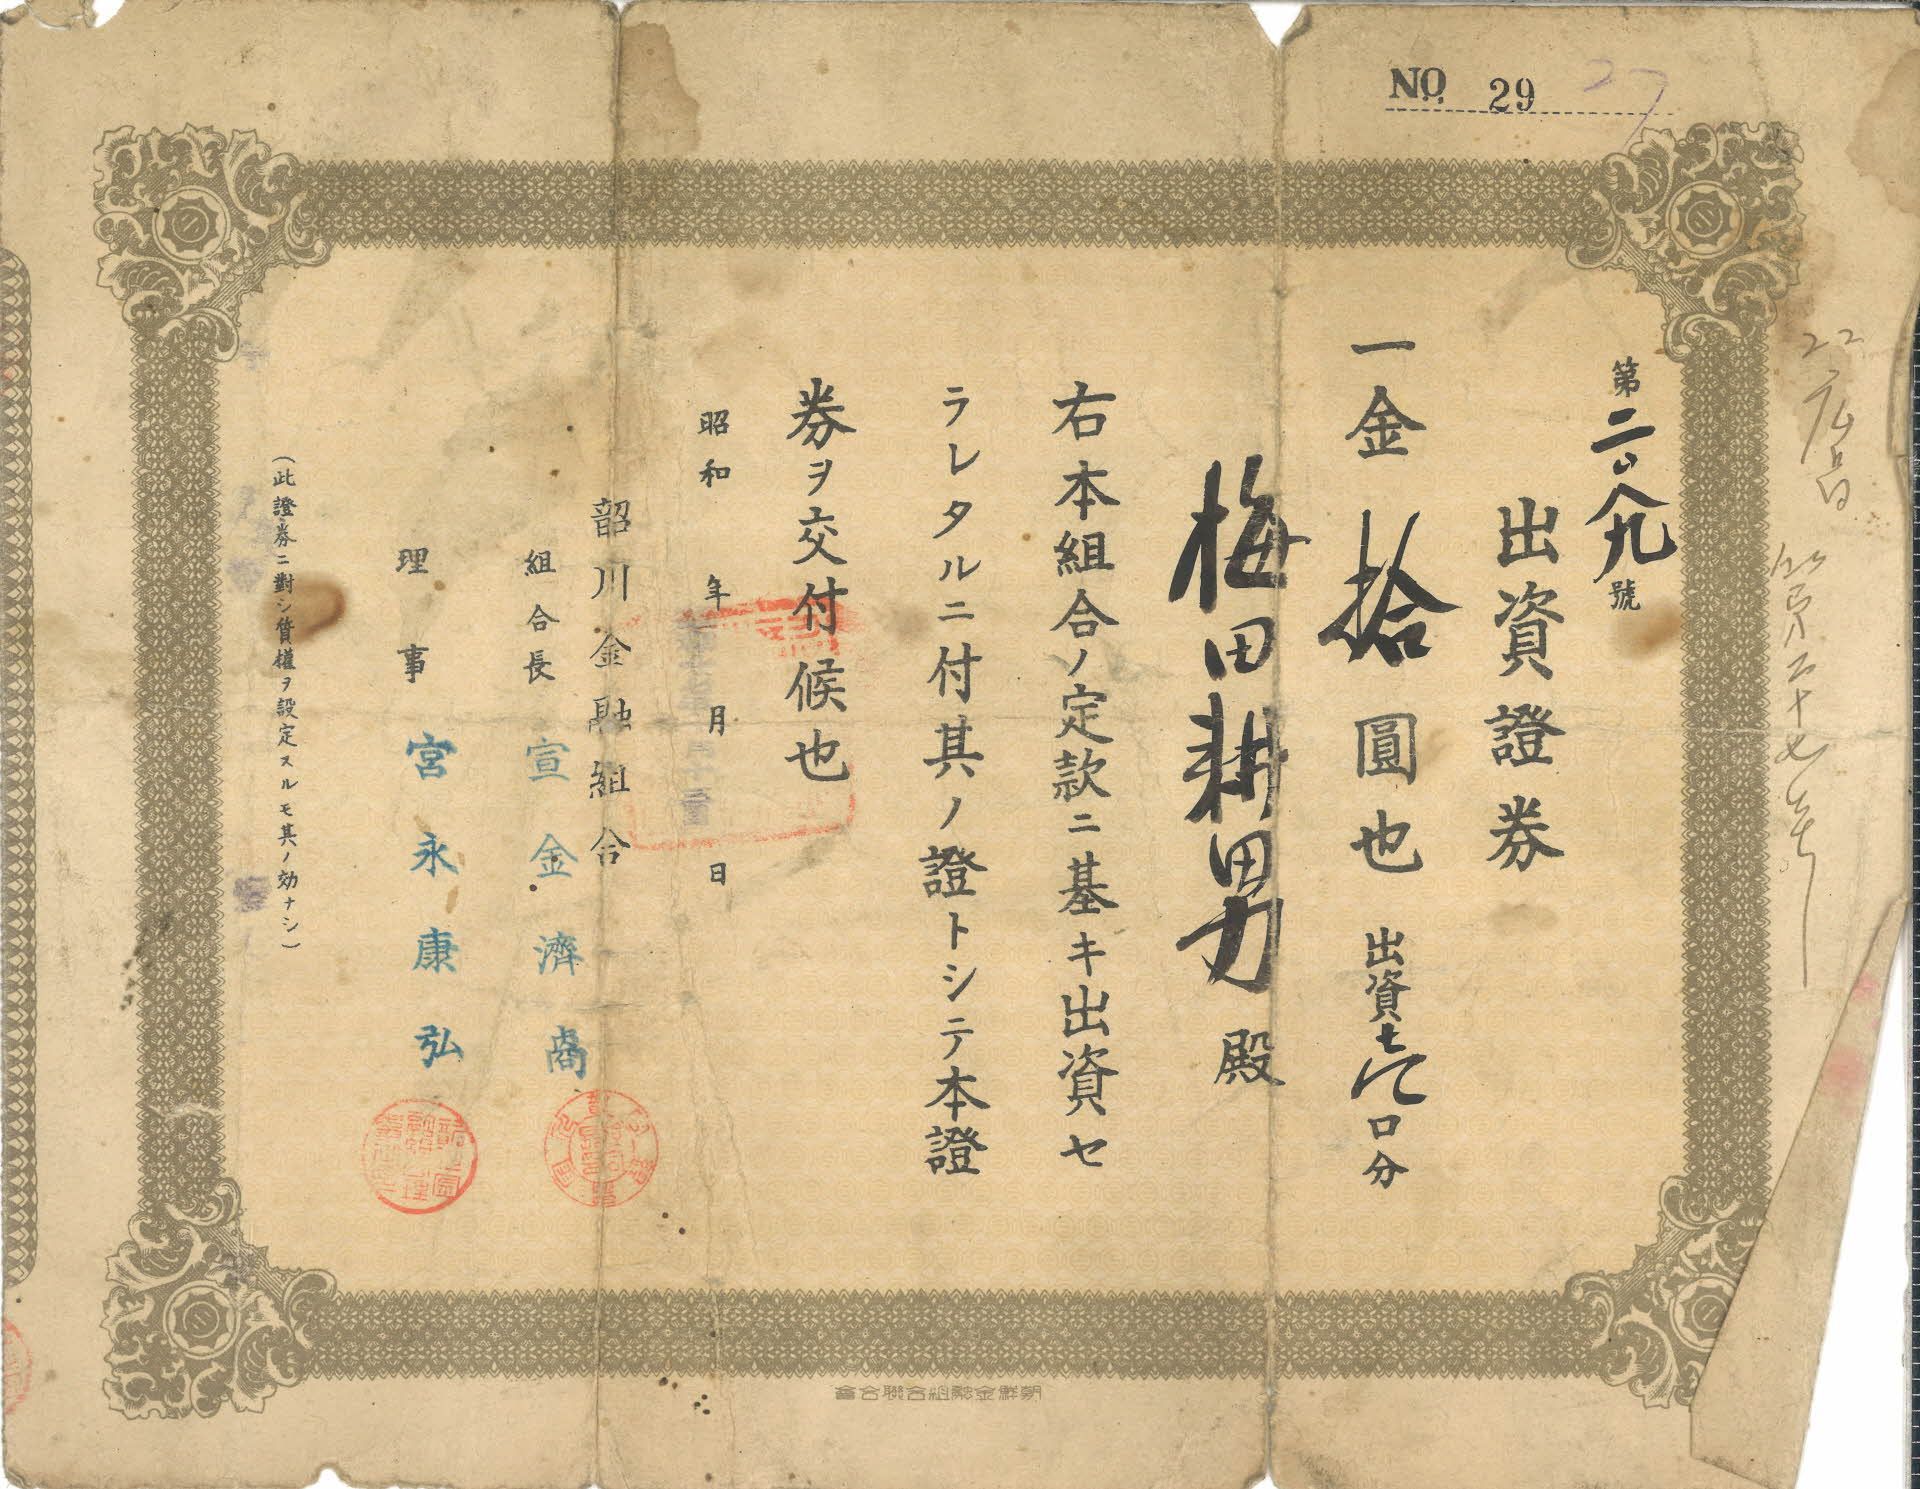 NO. 29
第二〇八九號
出資證券
一金拾圓也 出資壱口分
梅田耕男殿
右本組合ノ定款ニ基キ出資セ
ラレタルニ付其ノ證トシテ本證
券ヲ交付候也
昭和 年 月 日
韶川金融組合
組合長 宣金濟卨
理事 宮永康弘
(此證券ニ對シ質權ヲ設定スルモ其ノ効ナシ)
朝鮮金融組合聯合會